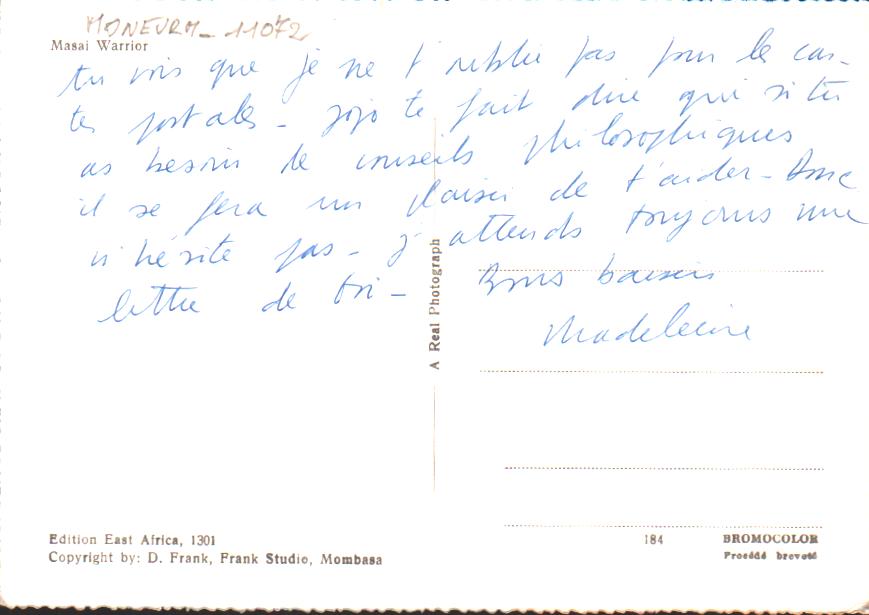 MONEURM_ 11072
Masai Warrior
tu vois que je ne t'oublie pas pour les car-
tes postales - Jojo te fait dire que si tu
as besoin de conseils philosophiques
il se fera un plaisir de t'aider - Donc
n'hésite pas - j'attends toujours une
lettre de toi - Bons baisers
Madeleine
A Real Photograph
Edition East Africa, 1301
Copyright by: D. Frank, Frank Studio, Mombasa
184 BROMOCOLOR
Procédé breveté